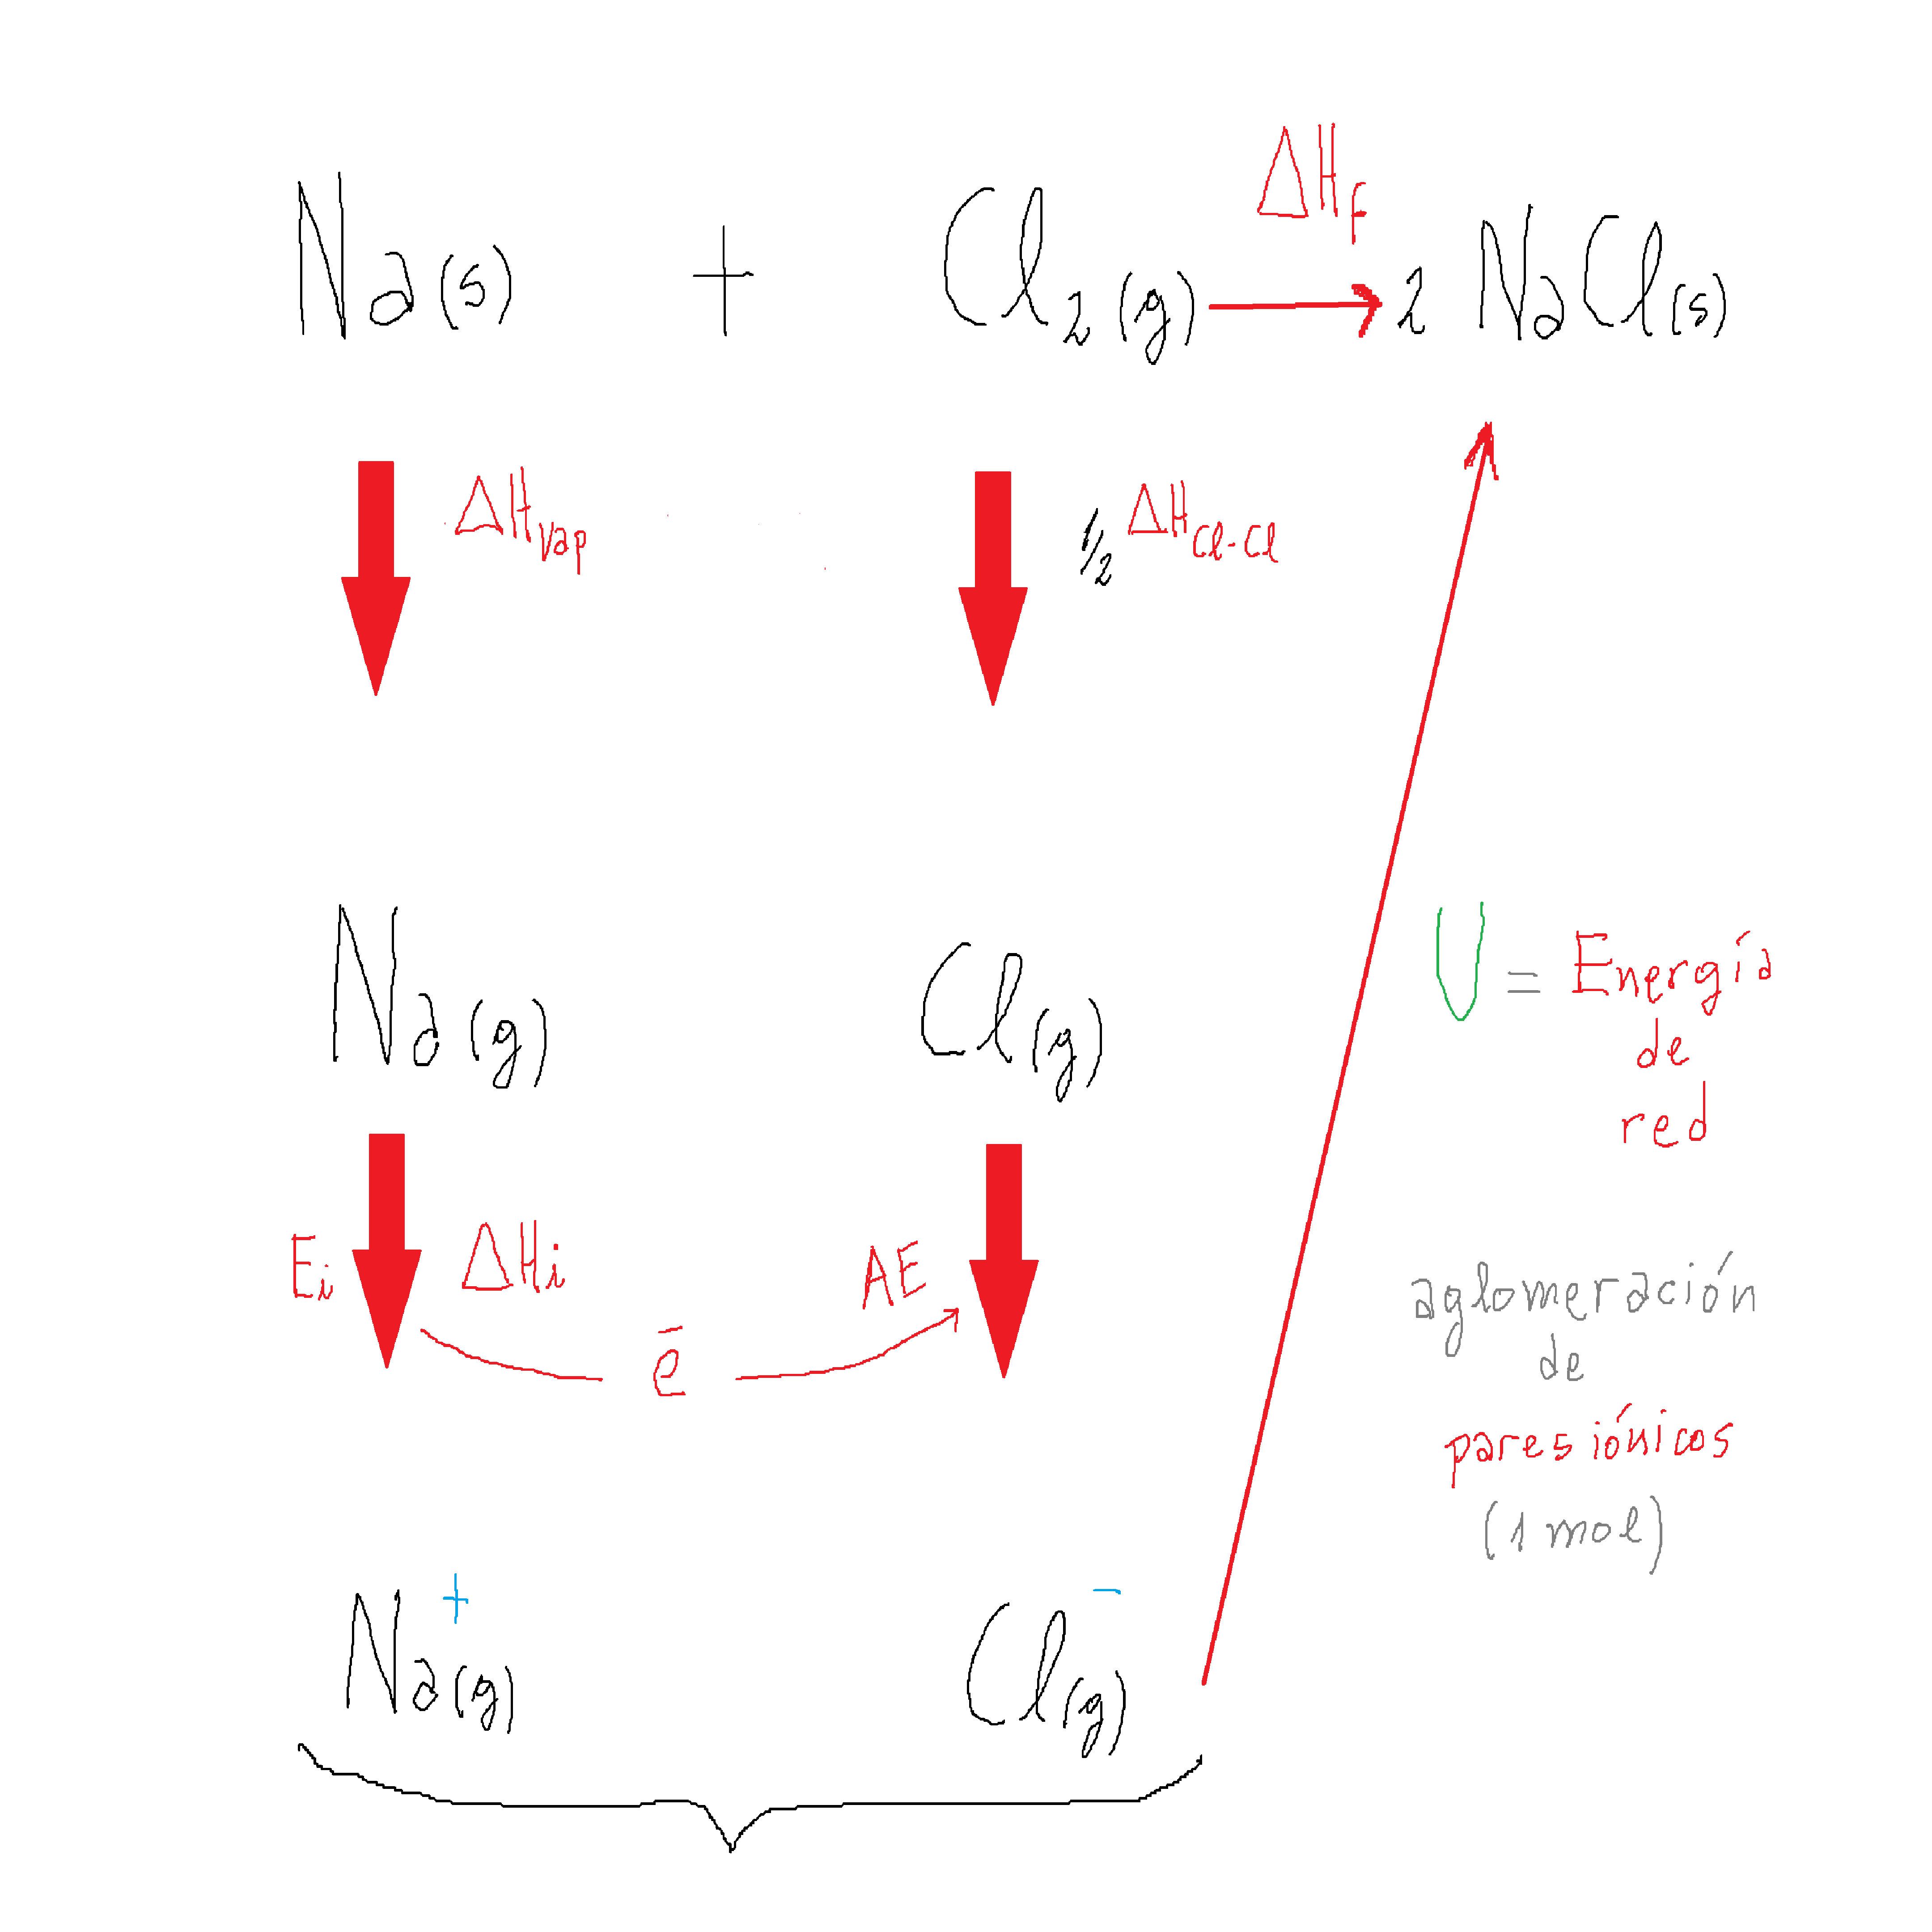 ΔH_f
Na(s) + Cl₂(g) → 2 NaCl(s)
ΔH_vap ½ ΔH_Cl-Cl
Na(g) Cl(g)
U = Energía
de
red
E_i ΔH_i AE
e⁻
aglomeración
de
pares iónicos
(1 mol)
Na⁺(g) Cl⁻(g)